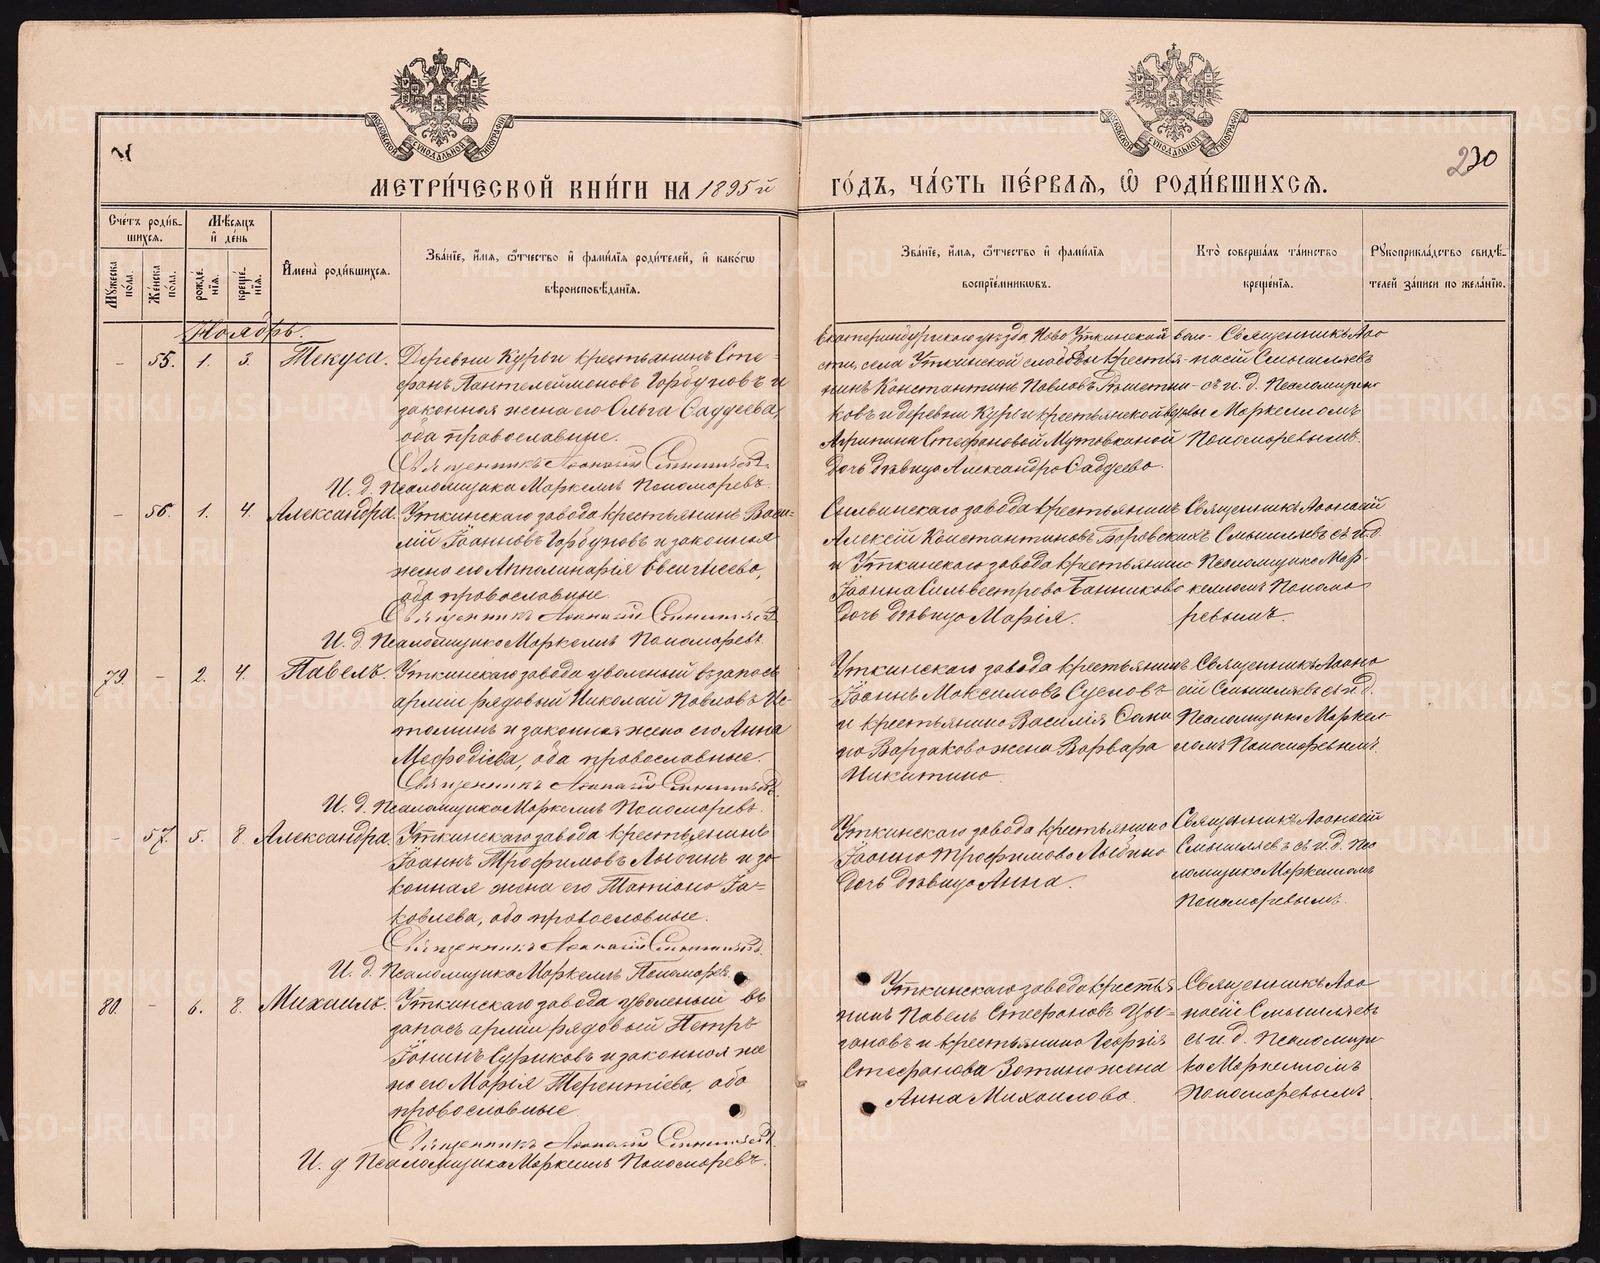 МЕТРИ́ЧЕСКОЙ КНИ́ГИ НА 1895й
ГО́ДЪ, ЧА́СТЬ ПЕ́РВАЯ, Ѡ РОДИ́ВШИХСЯ.
230
Счетъ роди́в-
шихся.
Мѣ́сяцъ
и де́нь
Мꙋ́жеска по́ла.
Же́нска по́ла.
рожде́нїя.
креще́нїя.
И҆мена̀ роди́вшихся.
Зва́нїе, и҆́мя, ѻ҆́тчество и҆ фами́лїя роди́телей, и҆ како́гѡ
вѣроисповѣ́данїя.
Зва́нїе, и҆́мя, ѻ҆́тчество и҆ фами́лїя
воспрїе́мниковъ.
Кто̀ соверша́лъ та́инство
креще́нїя.
Рꙋкоприкла́дство свидѣ́-
телей за́писи по жела́нїю.
Ноябрь.
- 55. 1. 3. Текуса.
Деревни Курьи крестьянинъ Сте-
фанъ Пантелеймоновъ Горбуновъ и
законная жена его Ольга
оба православные.
Священникъ Афанасій Смышляевъ
И. д. Псаломщика Маркеллъ Пономаревъ.
Екатеринбургскаго уѣзда Ново Уткинской вол-
сти, села Уткинской слободы крестья-
нинъ Константинъ Павловъ
ковъ и деревни Курьи крестьянской вдовы
Агрипины Стефановой Мутовкиной
дочь дѣвица Александра
Священникъ Афо-
насій Смышляевъ
съ и. д. Псаломщика
Маркелломъ
Пономаревымъ.
- 56. 1. 4. Александра.
Уткинскаго завода крестьянинъ Васи-
лій Іоанновъ Горбуновъ и законная
жена его Апполинарія Евсигнеева,
оба православные.
Священникъ Афанасій Смышляевъ
И. д. Псаломщика Маркеллъ Пономаревъ
Сылвинскаго завода крестьянинъ
Алексій Константиновъ Боровскихъ
и Уткинскаго завода крестьянина
Іоанна Сильвестрова Банникова
дочь дѣвица Марія.
Священникъ Афонасій
Смышляевъ съ и. д.
Псаломщика Мар-
келломъ Понома-
ревымъ.
79. - 2. 4. Павелъ.
Уткинскаго завода уволеный въ запасъ
арміи рядовый Николай Павловъ Ис-
томинъ и законная жена его Анна
Мефодіева, оба православные.
Священникъ Афанасій Смышляевъ
И. д. Псаломщика Маркеллъ Пономаревъ.
Уткинскаго завода крестьянинъ
Іоаннъ Максимовъ Сусловъ
и крестьянина Василія
Варзакова жена Варвара
Никитина.
Священникъ Афона-
сій Смышляевъ съ и. д.
Псаломщика Маркел-
ломъ Пономаревымъ.
- 57. 5. 8. Александра.
Уткинскаго завода крестьянинъ
Іоаннъ Трофимовъ Лыбинъ и за-
конная жена его Татіана Іа-
ковлева, оба православные.
Священникъ Афанасій Смышляевъ
И. д. Псаломщика Маркеллъ Пономаревъ
Уткинскаго завода крестьянина
Іоанна Трофимова Лыбина
дочь дѣвица Анна.
Священникъ Афонасій
Смышляевъ съ и. д. Пса-
ломщика Маркелломъ
Пономаревымъ.
80. - 6. 8. Михаилъ.
Уткинскаго завода уволеный въ
запасъ арміи рядовый Петръ
Іонинъ Суриковъ и законная же-
на его Марія Терентіева, оба
православные
Священникъ Афанасій Смышляевъ
И. д Псаломщика Маркеллъ Пономаревъ.
Уткинскаго завода крестья-
нинъ Павелъ Стефановъ Цы-
гановъ и крестьянина Георгія
Стефанова Зотина жена
Анна Михаилова.
Священникъ Афо-
насій Смышляевъ
съ и. д. Псаломщи-
ка Маркелломъ
Пономаревымъ.
METRIKI.GASO-URAL.RU